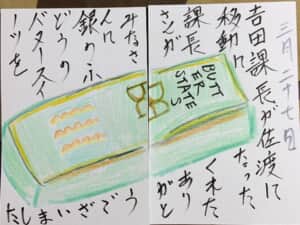 三月二十七日
吉田課長が佐渡に
移動になった
課長
さんが
みなさ
んに
銀のぶ
どうの
バタースイ
ーツを
くれた
ありがと
うございました
BUTT
ER
STATES